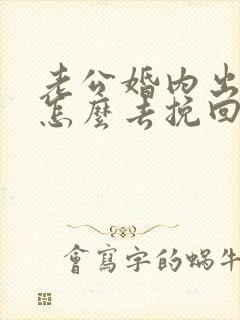 老公婚内出
怎麼去挽回
會寫字的蝸牛